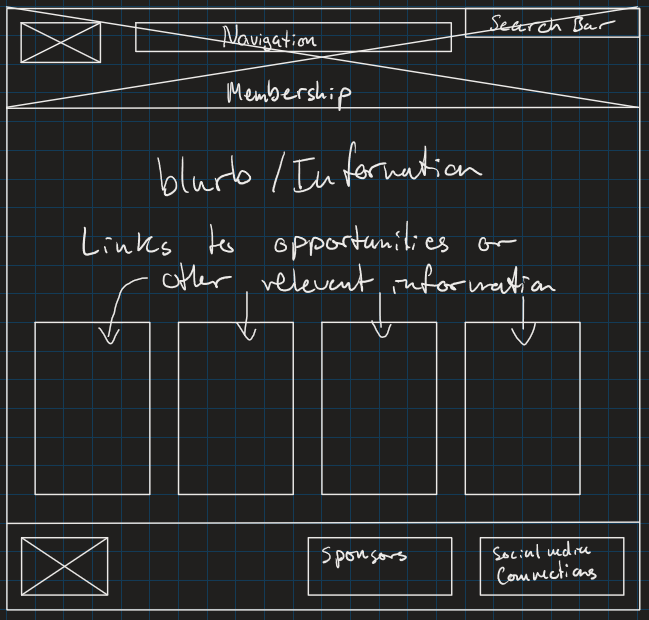 Navigation
Search Bar
Membership
blurb / Information
Links to opportunities or
other relevant information
Sponsors
Social media
Connections